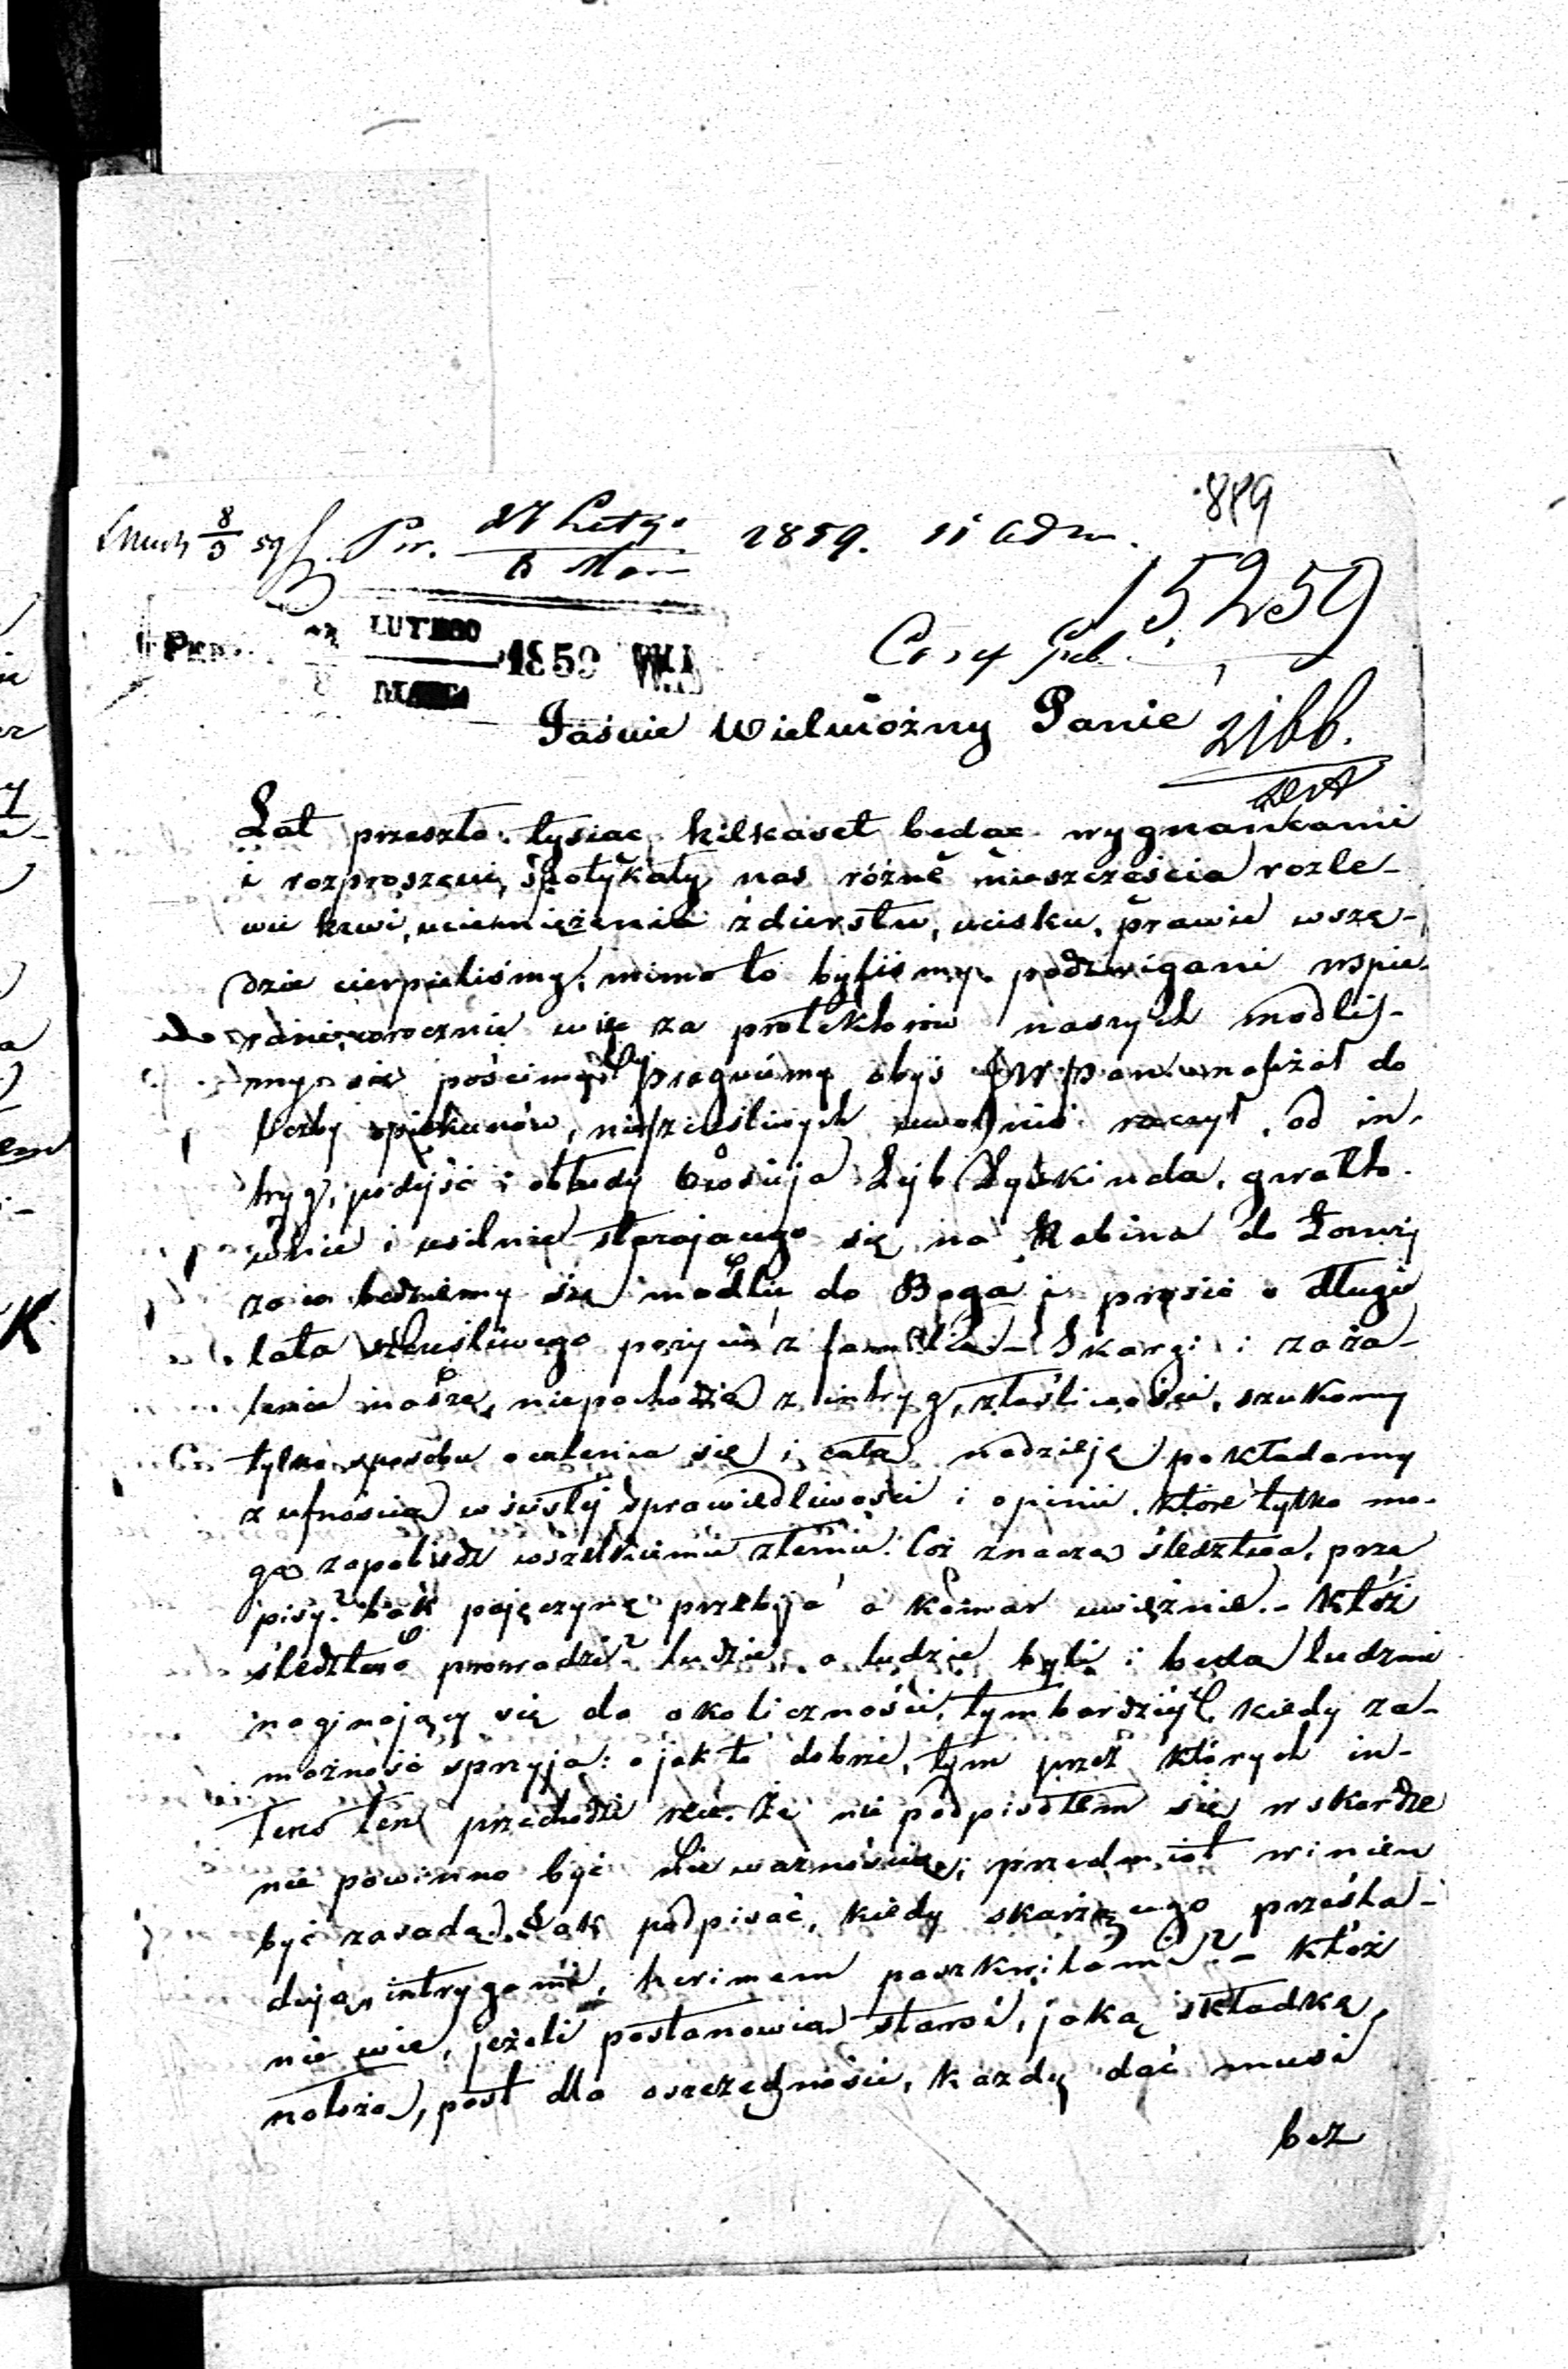 889
Pr. 27 Lutgo 1859.
6 Mar
15259
LUTEGO 1859
MARCA
Jaśnie Wielmożny Panie
2166.
Lat przeszło tysiąc kilkaset będąc wygnańcami
i rozproszeni, spotykały nas różne nieszczęścia rozle-
wu krwi, uciemiężenia zdzierstw, ucisku, prawie wszę-
dzie cierpieliśmy, mimo to byliśmy podzwigani wspie-
rani, corocznie więc za protektorów naszych modli-
my się pościmy pragniemy abyś JW Pan należał do
liczby opiekunów, nieszczęśliwych uwolnić raczył, od in-
tryg, podejść i obłudy Lyb Zyskinda, gwałto-
wnie i usilnie starającego się na Rabina do Łowi-
cza będziemy się modlić do Boga i prosić o długie
lata szczęśliwego pożycia z familią - Skargi i zaża-
lenia nasze, niepochodzą z intryg, złośliwości, szukamy
tylko sposobu ocalenia się i całą nadzieję pokładamy
z ufnością w ścisłej sprawiedliwości i opinii, które tylko mo-
gą zapobiedz wszelkiemu złemu. Coż znaczą śledztwa, prze
pisy? bąk pajęczynę przebija a komar uwięźnie. - Któż
śledztwo prowadzi? ludzie, a ludzie byli i będą ludzmi
naginający się do okoliczności, tymbardziej kiedy za-
możność sprzyja: o jak to dobrze, tym przez których in-
teres ten przechodzi Że nie podpisałem się w skardze
nie powinno być nieważnością, przedmiot winien
być zasadą. Jak podpisać, kiedy skarżącego prześla-
dują, intrygami, herimem paszkwilami? - Któż
nie wie, jeżeli postanowią starsi, jaką składkę
nałożą, post dla oszczędności, każdy dać musi
bez